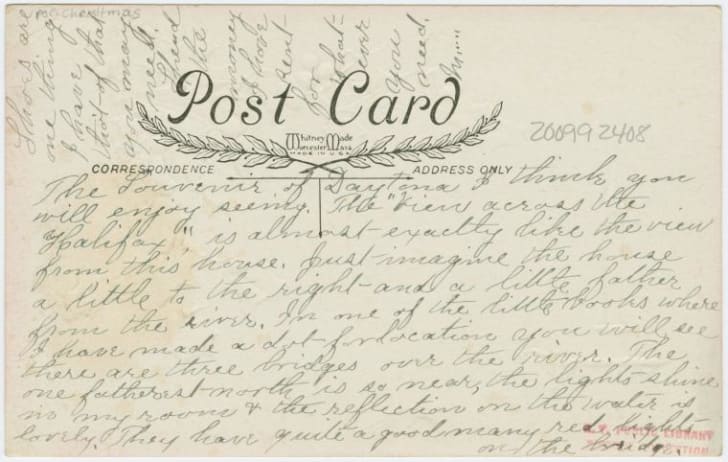 Post Card
Whitney Made
Worcester Mass.
MADE IN U.S.A.
CORRESPONDENCE
ADDRESS ONLY
200992408
The Souvenir of Daytona I think you
will enjoy seeing. The "View across the
Halifax," is almost exactly like the view
from this house. Just imagine the house
a little to the right and a little father
from the river. In one of the little books where
I have made a dot for location you will see
there are three bridges over the river. The
one fatherest north is so near, the lights shine
my room & the reflection on the water is
lovely. They have quite a good many red lights
on the bridge.
Shoes are
one thing
I have
that of that
you may
need.
Spend
the
money
I have
sent
for
what-
ever
you
need.
N.Y. PUBLIC LIBRARY